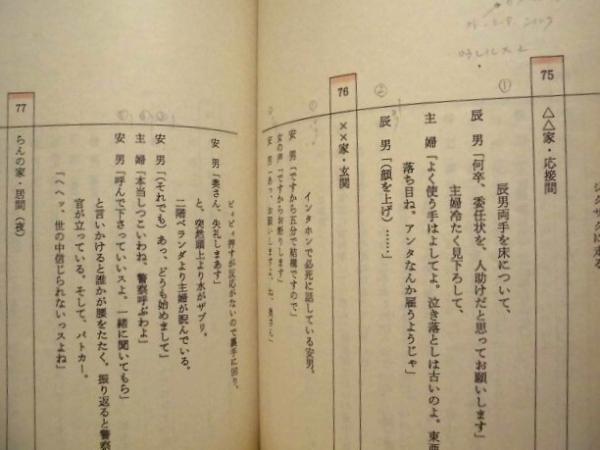 ジグザグに走る
75
△△家・応接間
辰男両手を床について、
辰　男「何卒、委任状を、人助けだと思ってお願いします」
主婦冷たく見下ろして、
主　婦「よく使う手はよしてよ。泣き落としは古いのよ。東亜
落ち目ね。アンタなんか雇うようじゃ」
辰　男「（顔を上げ）……」
76
××家・玄関
インタホンで必死に話している安男。
安　男「ですから五分で結構ですので」
女の声「ですからお断りします」
安　男「あっ、お願いしますよ、ね、奥さん」
ピィピィ押すが反応がないので裏手に回り、
安　男「奥さん、失礼しまあす」
と、突然頭上より水がザブリ。
二階ベランダより主婦が睨んでいる。
安　男「（それでも）あっ、どうも始めまして」
主　婦「本当しつこいわね、警察呼ぶわよ」
安　男「呼んで下さっていいスよ。一緒に聞いてもら」
と言いかけると誰かが腰をたたく。振り返ると警察
官が立っている。そして、パトカー。
「へヘッ、世の中信じられないっスよね」
77
らんの家・居間（夜）
①
②